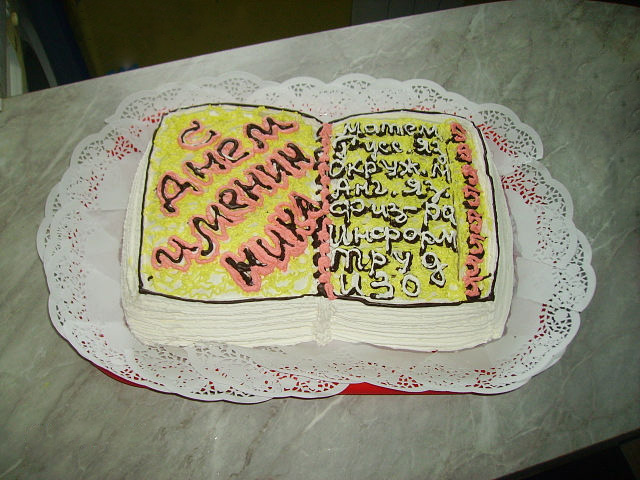 С
Днем
именин
Мика
матем
Русс.яз
окруж.м
Анг.яз
физ-ра
Информ
труд
ИЗО